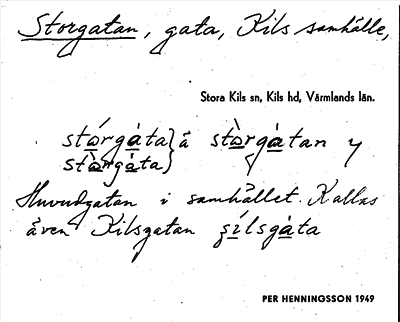 Storgatan, gata, Kils samhälle,
Stora Kils sn, Kils hd, Värmlands län.
stórgàta } å stòrgàtan
stòrgàta }
Huvudgatan i samhället. Kallas
även Kilsgatan
PER HENNINGSSON 1949